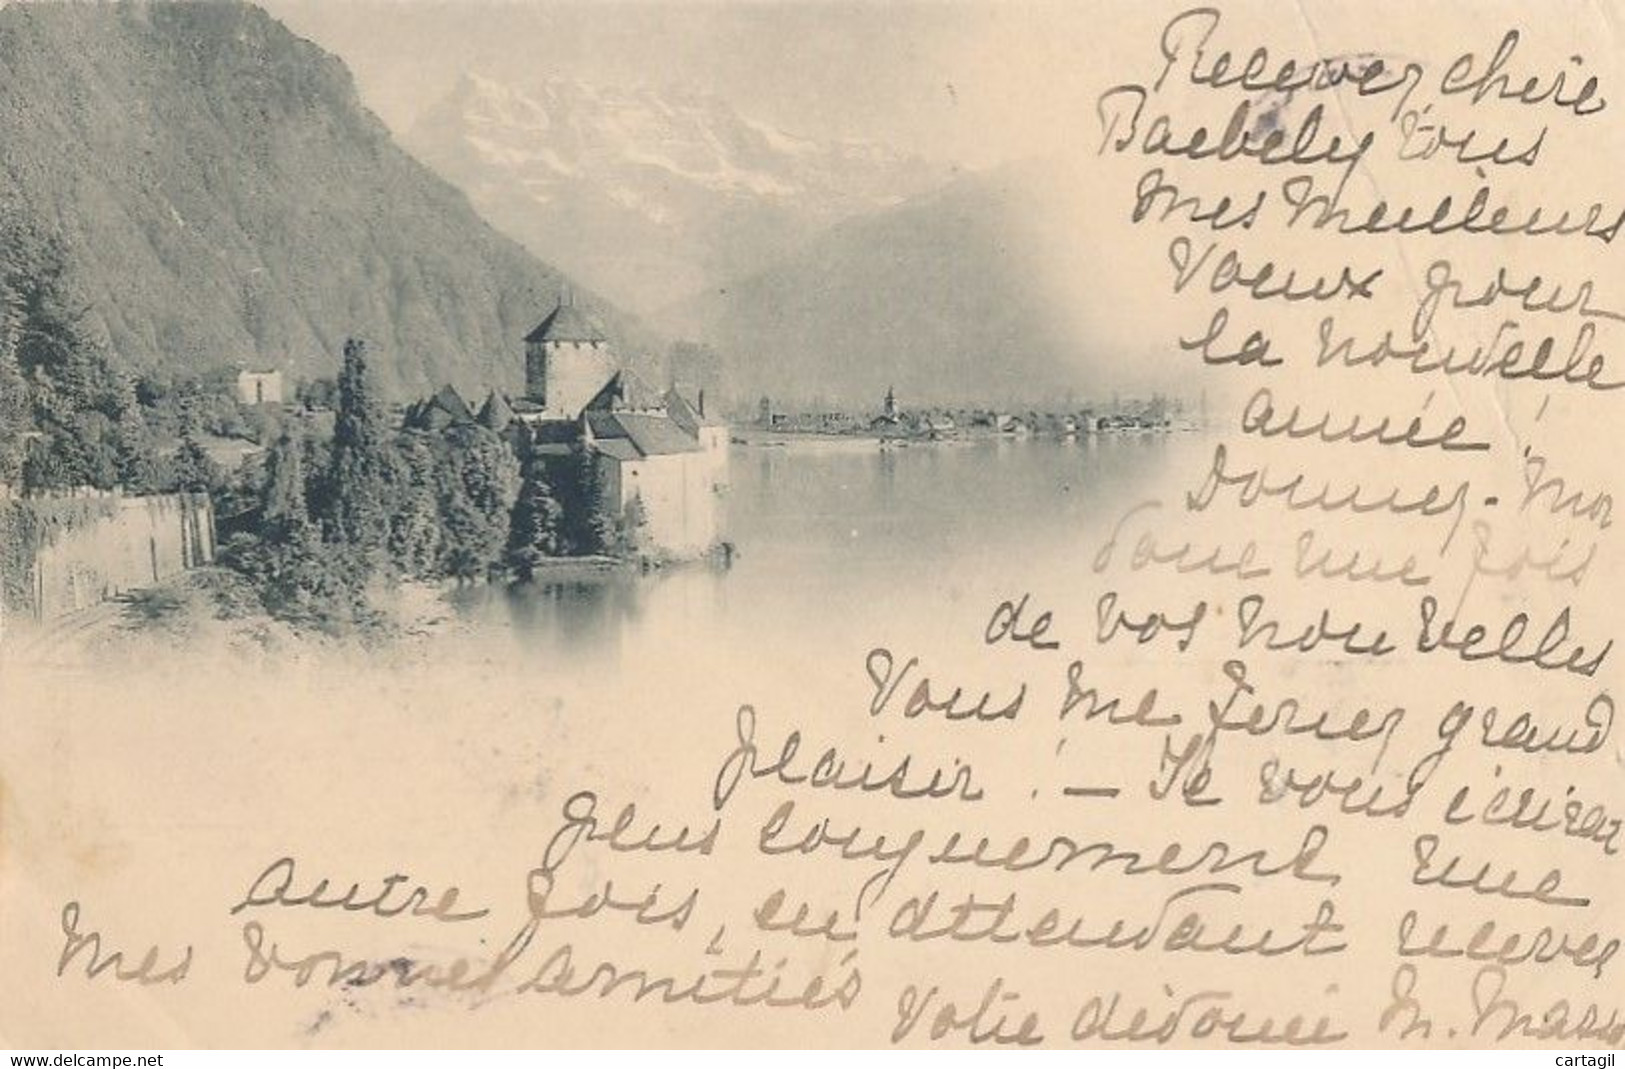 Recevez, chère
Baebely tous
mes meilleurs
voeux pour
la nouvelle
année!
Donnez-moi
donc une fois
de vos nouvelles
Vous me feriez grand
plaisir! — Je vous écrirai
plus longuement une
autre fois, en attendant recevez
mes bonnes amitiés
Votre dévouée M.
www.delcampe.net
cartagil